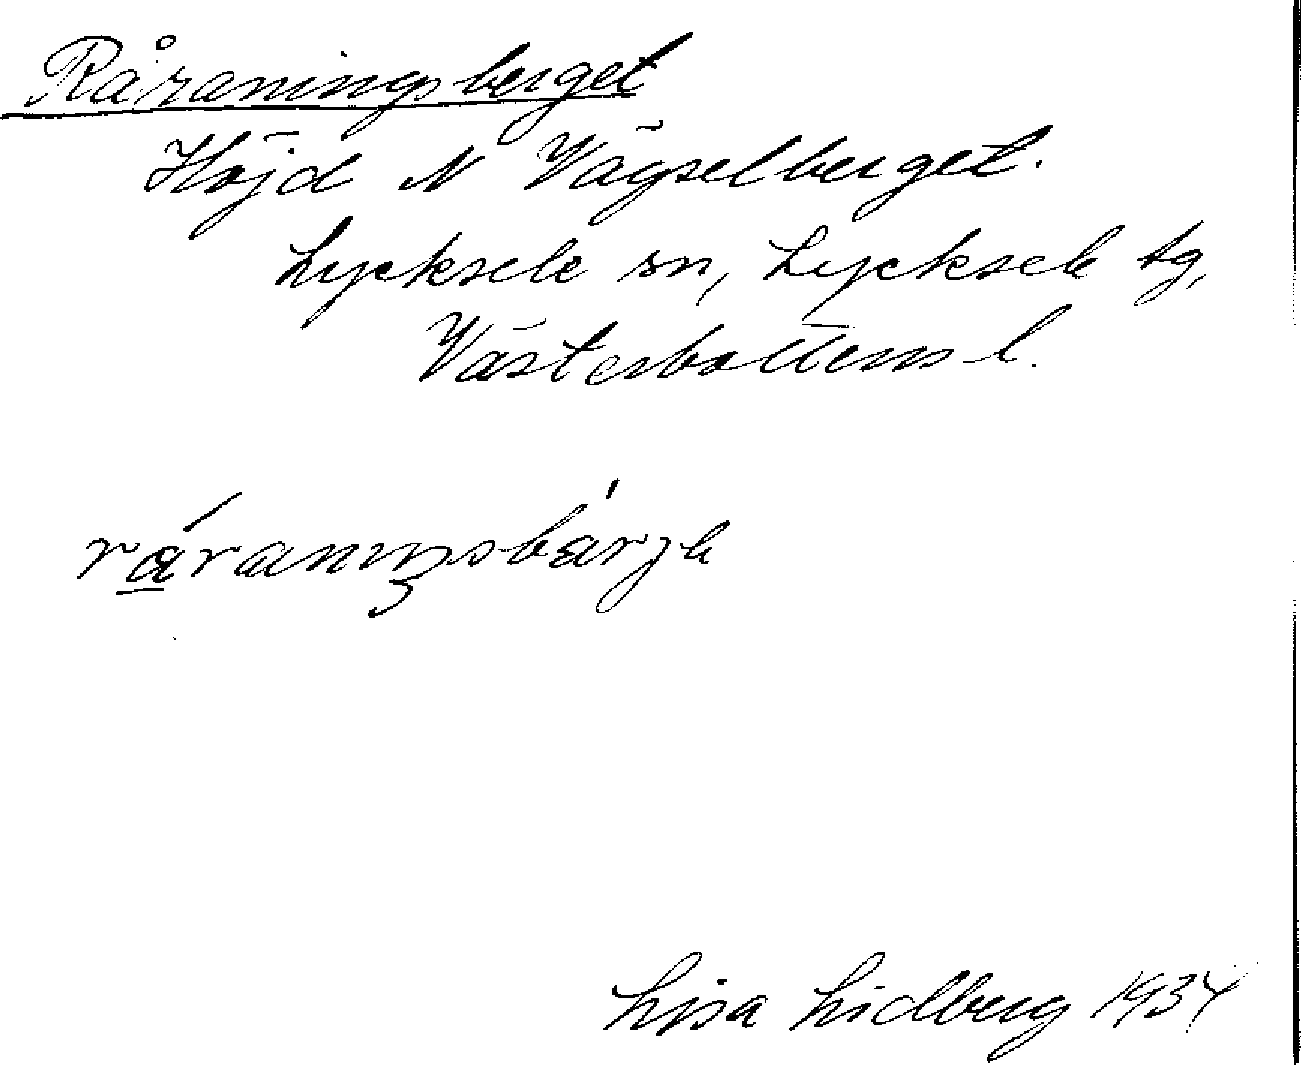 Råraningsberget
Höjd N Vägselberget.
Lycksele sn, Lycksele tg,
Västerbottens l.
råranıŋsbärjɐ
Lisa Lidberg 1934